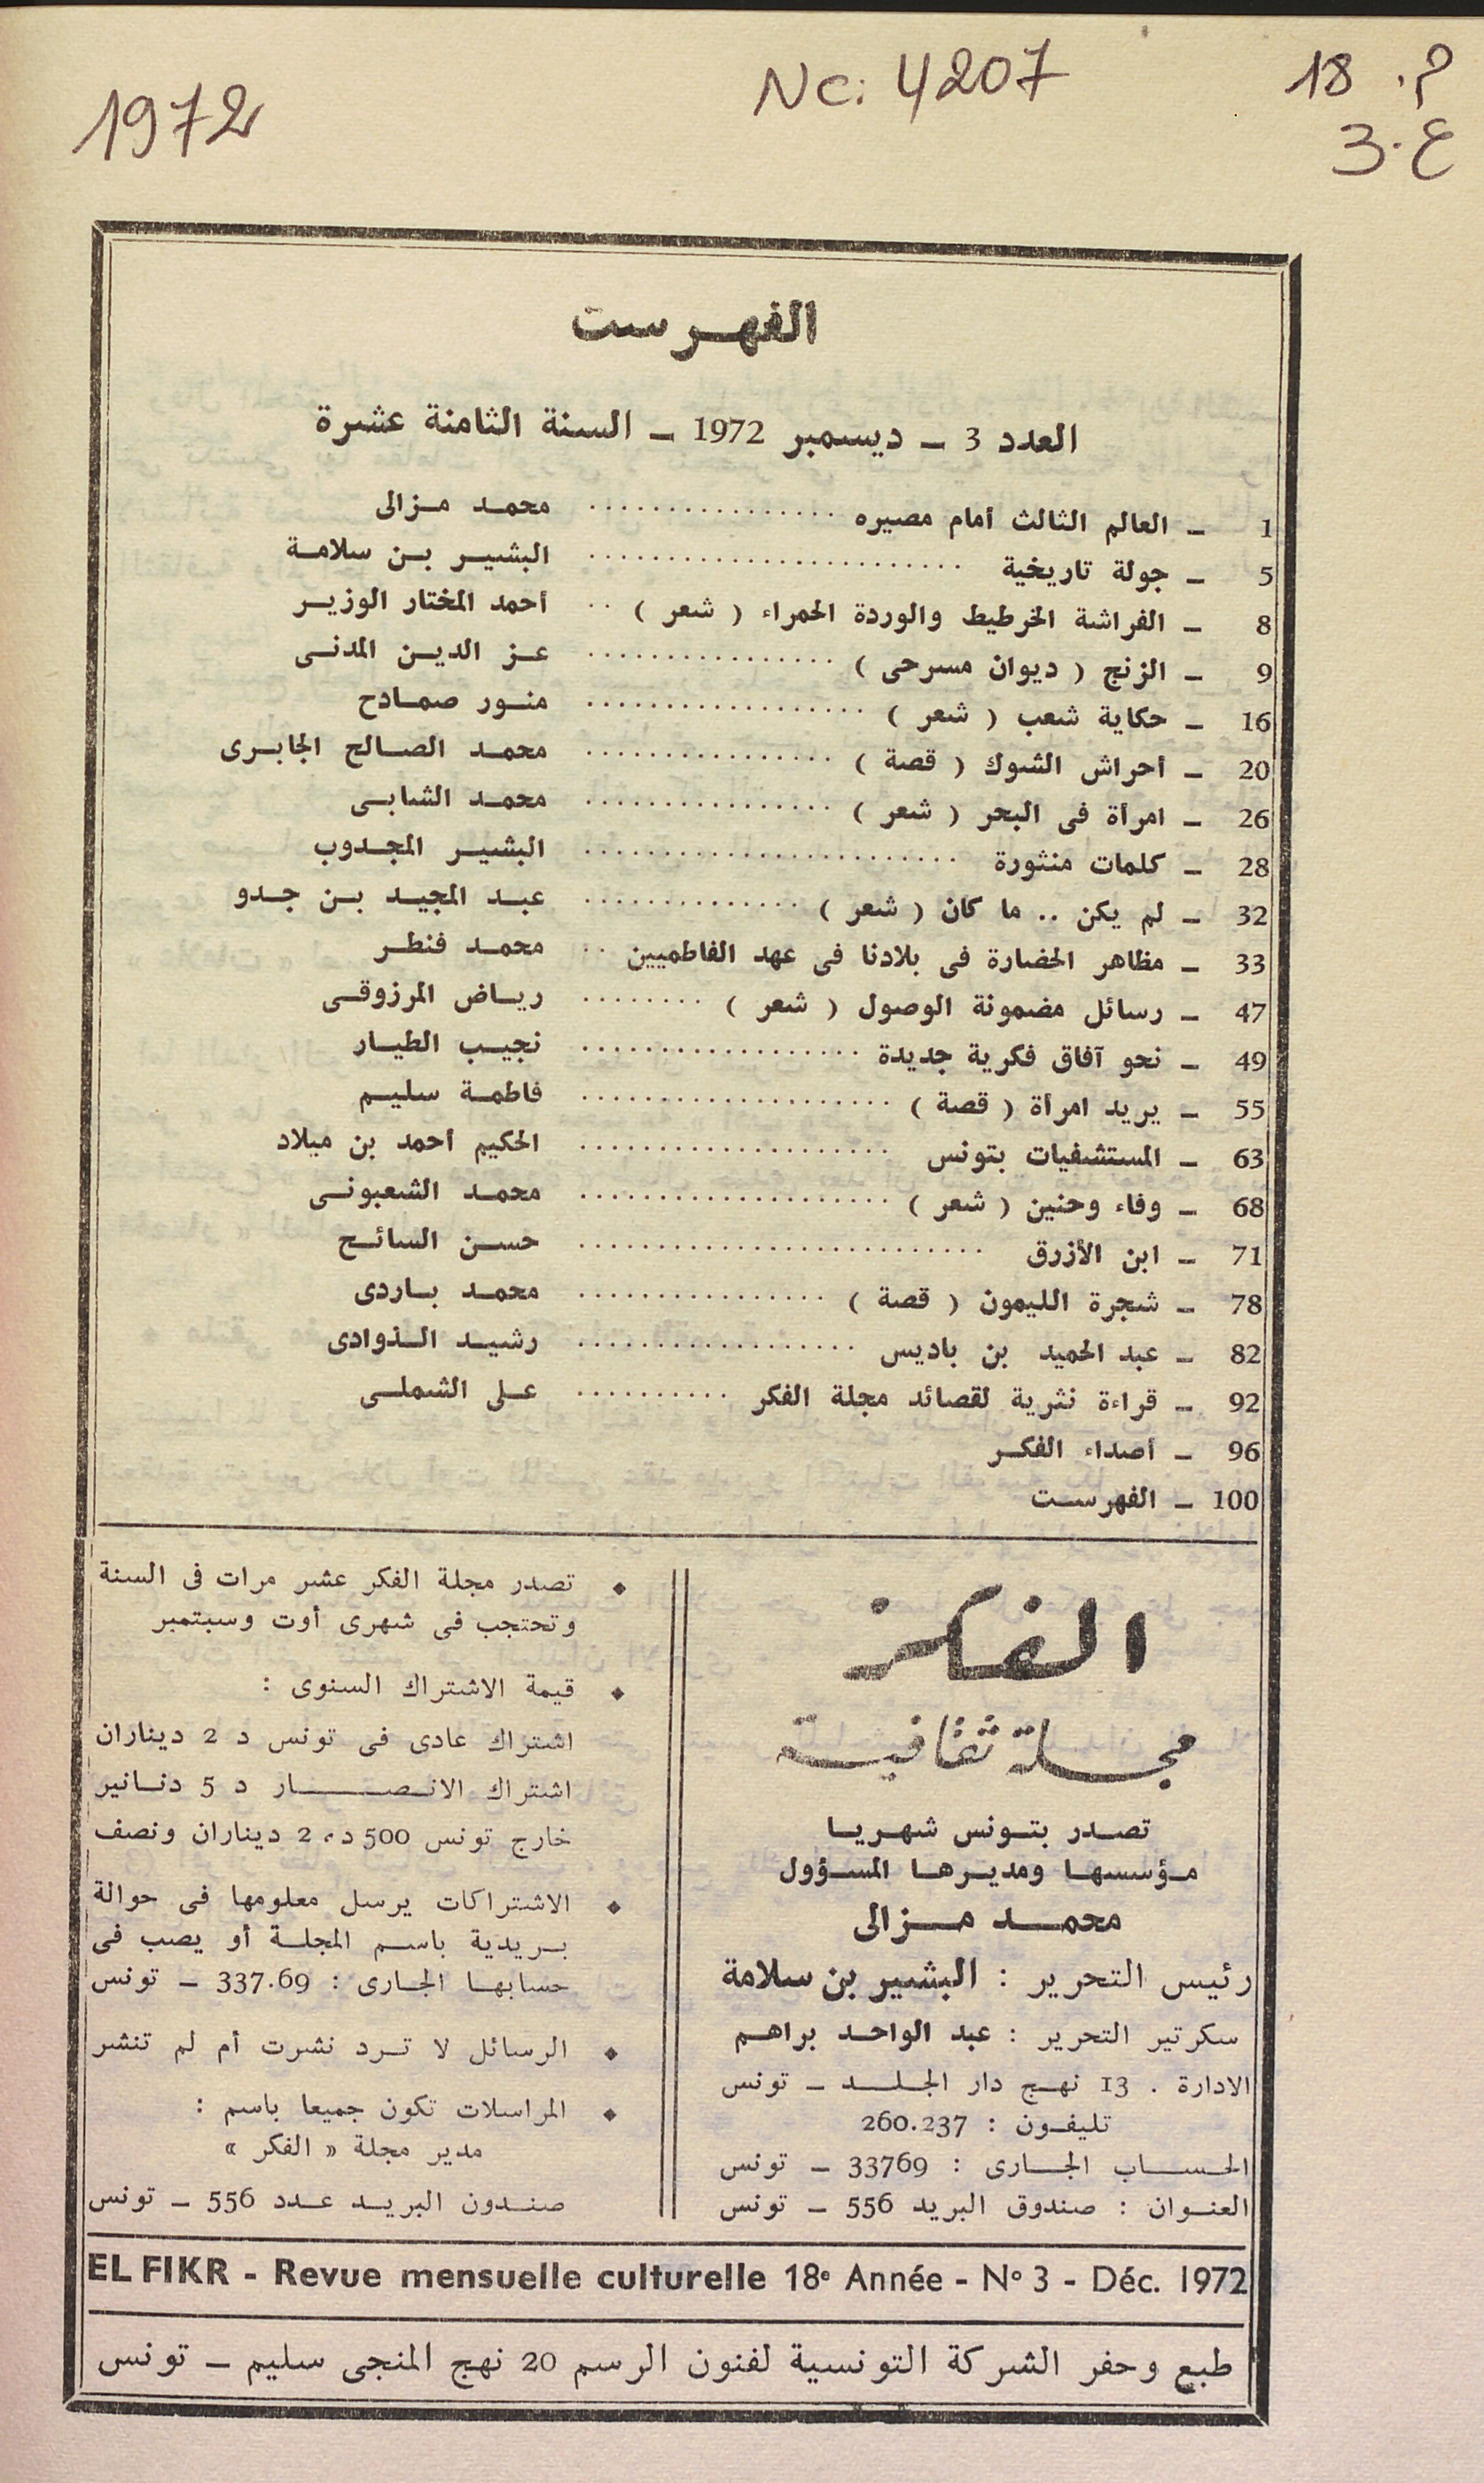 1972
Nc: 4207
م. 18
ع. 3
الفهرست
العدد 3 – ديسمبر 1972 – السنة الثامنة عشرة
1 – العالم الثالث أمام مصيره ................ محمد مزالى
5 – جولة تاريخية ........................ البشير بن سلامة
8 – الفراشة الخرطيط والوردة الحمراء ( شعر ) .. أحمد المختار الوزير
9 – الزنج ( ديوان مسرحى ) ................ عز الدين المدنى
16 – حكاية شعب ( شعر ) .................. منور صمادح
20 – أحراش الشوك ( قصة ) ................ محمد الصالح الجابرى
26 – امرأة فى البحر ( شعر ) ................ محمد الشابى
28 – كلمات منثورة ........................ البشير المجدوب
32 – لم يكن .. ما كان ( شعر ) .............. عبد المجيد بن جدو
33 – مظاهر الحضارة فى بلادنا فى عهد الفاطميين .. محمد فنطر
47 – رسائل مضمونة الوصول ( شعر ) ........ رياض المرزوقى
49 – نحو آفاق فكرية جديدة .................. نجيب الطيار
55 – يريد امرأة ( قصة ) .................... فاطمة سليم
63 – المستشفيات بتونس .................... الحكيم أحمد بن ميلاد
68 – وفاء وحنين ( شعر ) .................... محمد الشعبونى
71 – ابن الأزرق .......................... حسن السائح
78 – شجرة الليمون ( قصة ) ................ محمد باردى
82 – عبد الحميد بن باديس .................. رشيد الذوادى
92 – قراءة نثرية لقصائد مجلة الفكر .......... على الشملى
96 – أصداء الفكر
100 – الفهرست
الفكر
مجلة ثقافية
تصدر بتونس شهريا
مؤسسها ومديرها المسؤول
محمد مزالى
رئيس التحرير : البشير بن سلامة
سكرتير التحرير : عبد الواحد براهم
الادارة . 13 نهج دار الجلد – تونس
تليفون : 260.237
الحساب الجارى : 33769 – تونس
العنوان : صندوق البريد 556 – تونس
◆ تصدر مجلة الفكر عشر مرات فى السنة
وتحتجب فى شهرى أوت وسبتمبر
◆ قيمة الاشتراك السنوى :
اشتراك عادى فى تونس د 2 ديناران
اشتراك الانصار د 5 دنانير
خارج تونس 500 د، 2 ديناران ونصف
◆ الاشتراكات يرسل معلومها فى حوالة
بريدية باسم المجلة أو يصب فى
حسابها الجارى : 337.69 – تونس
◆ الرسائل لا ترد نشرت أم لم تنشر
◆ المراسلات تكون جميعا باسم :
مدير مجلة « الفكر »
صندون البريد عدد 556 – تونس
EL FIKR - Revue mensuelle culturelle 18e Année - No 3 - Déc. 1972
طبع وحفر الشركة التونسية لفنون الرسم 20 نهج المنجى سليم – تونس